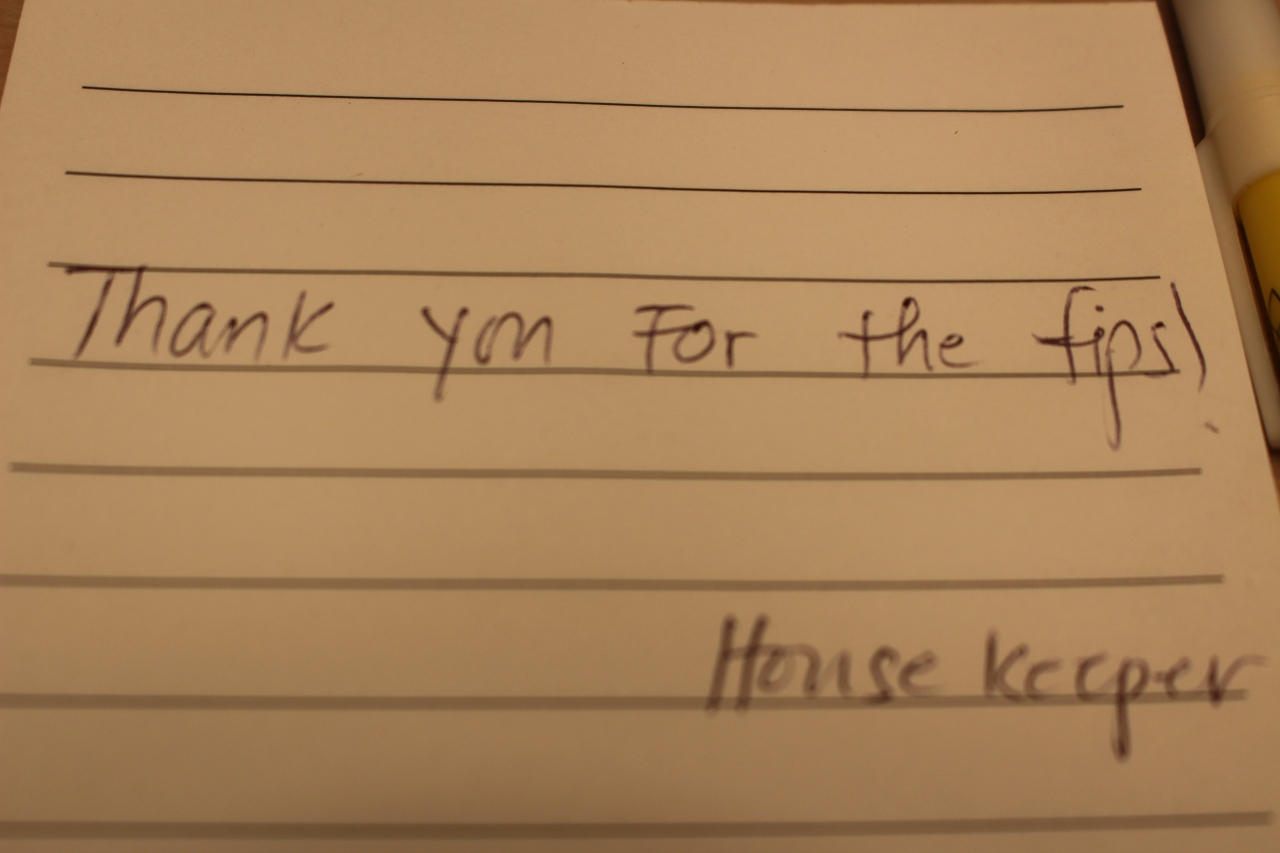 Thank you For the tips!
House keeper